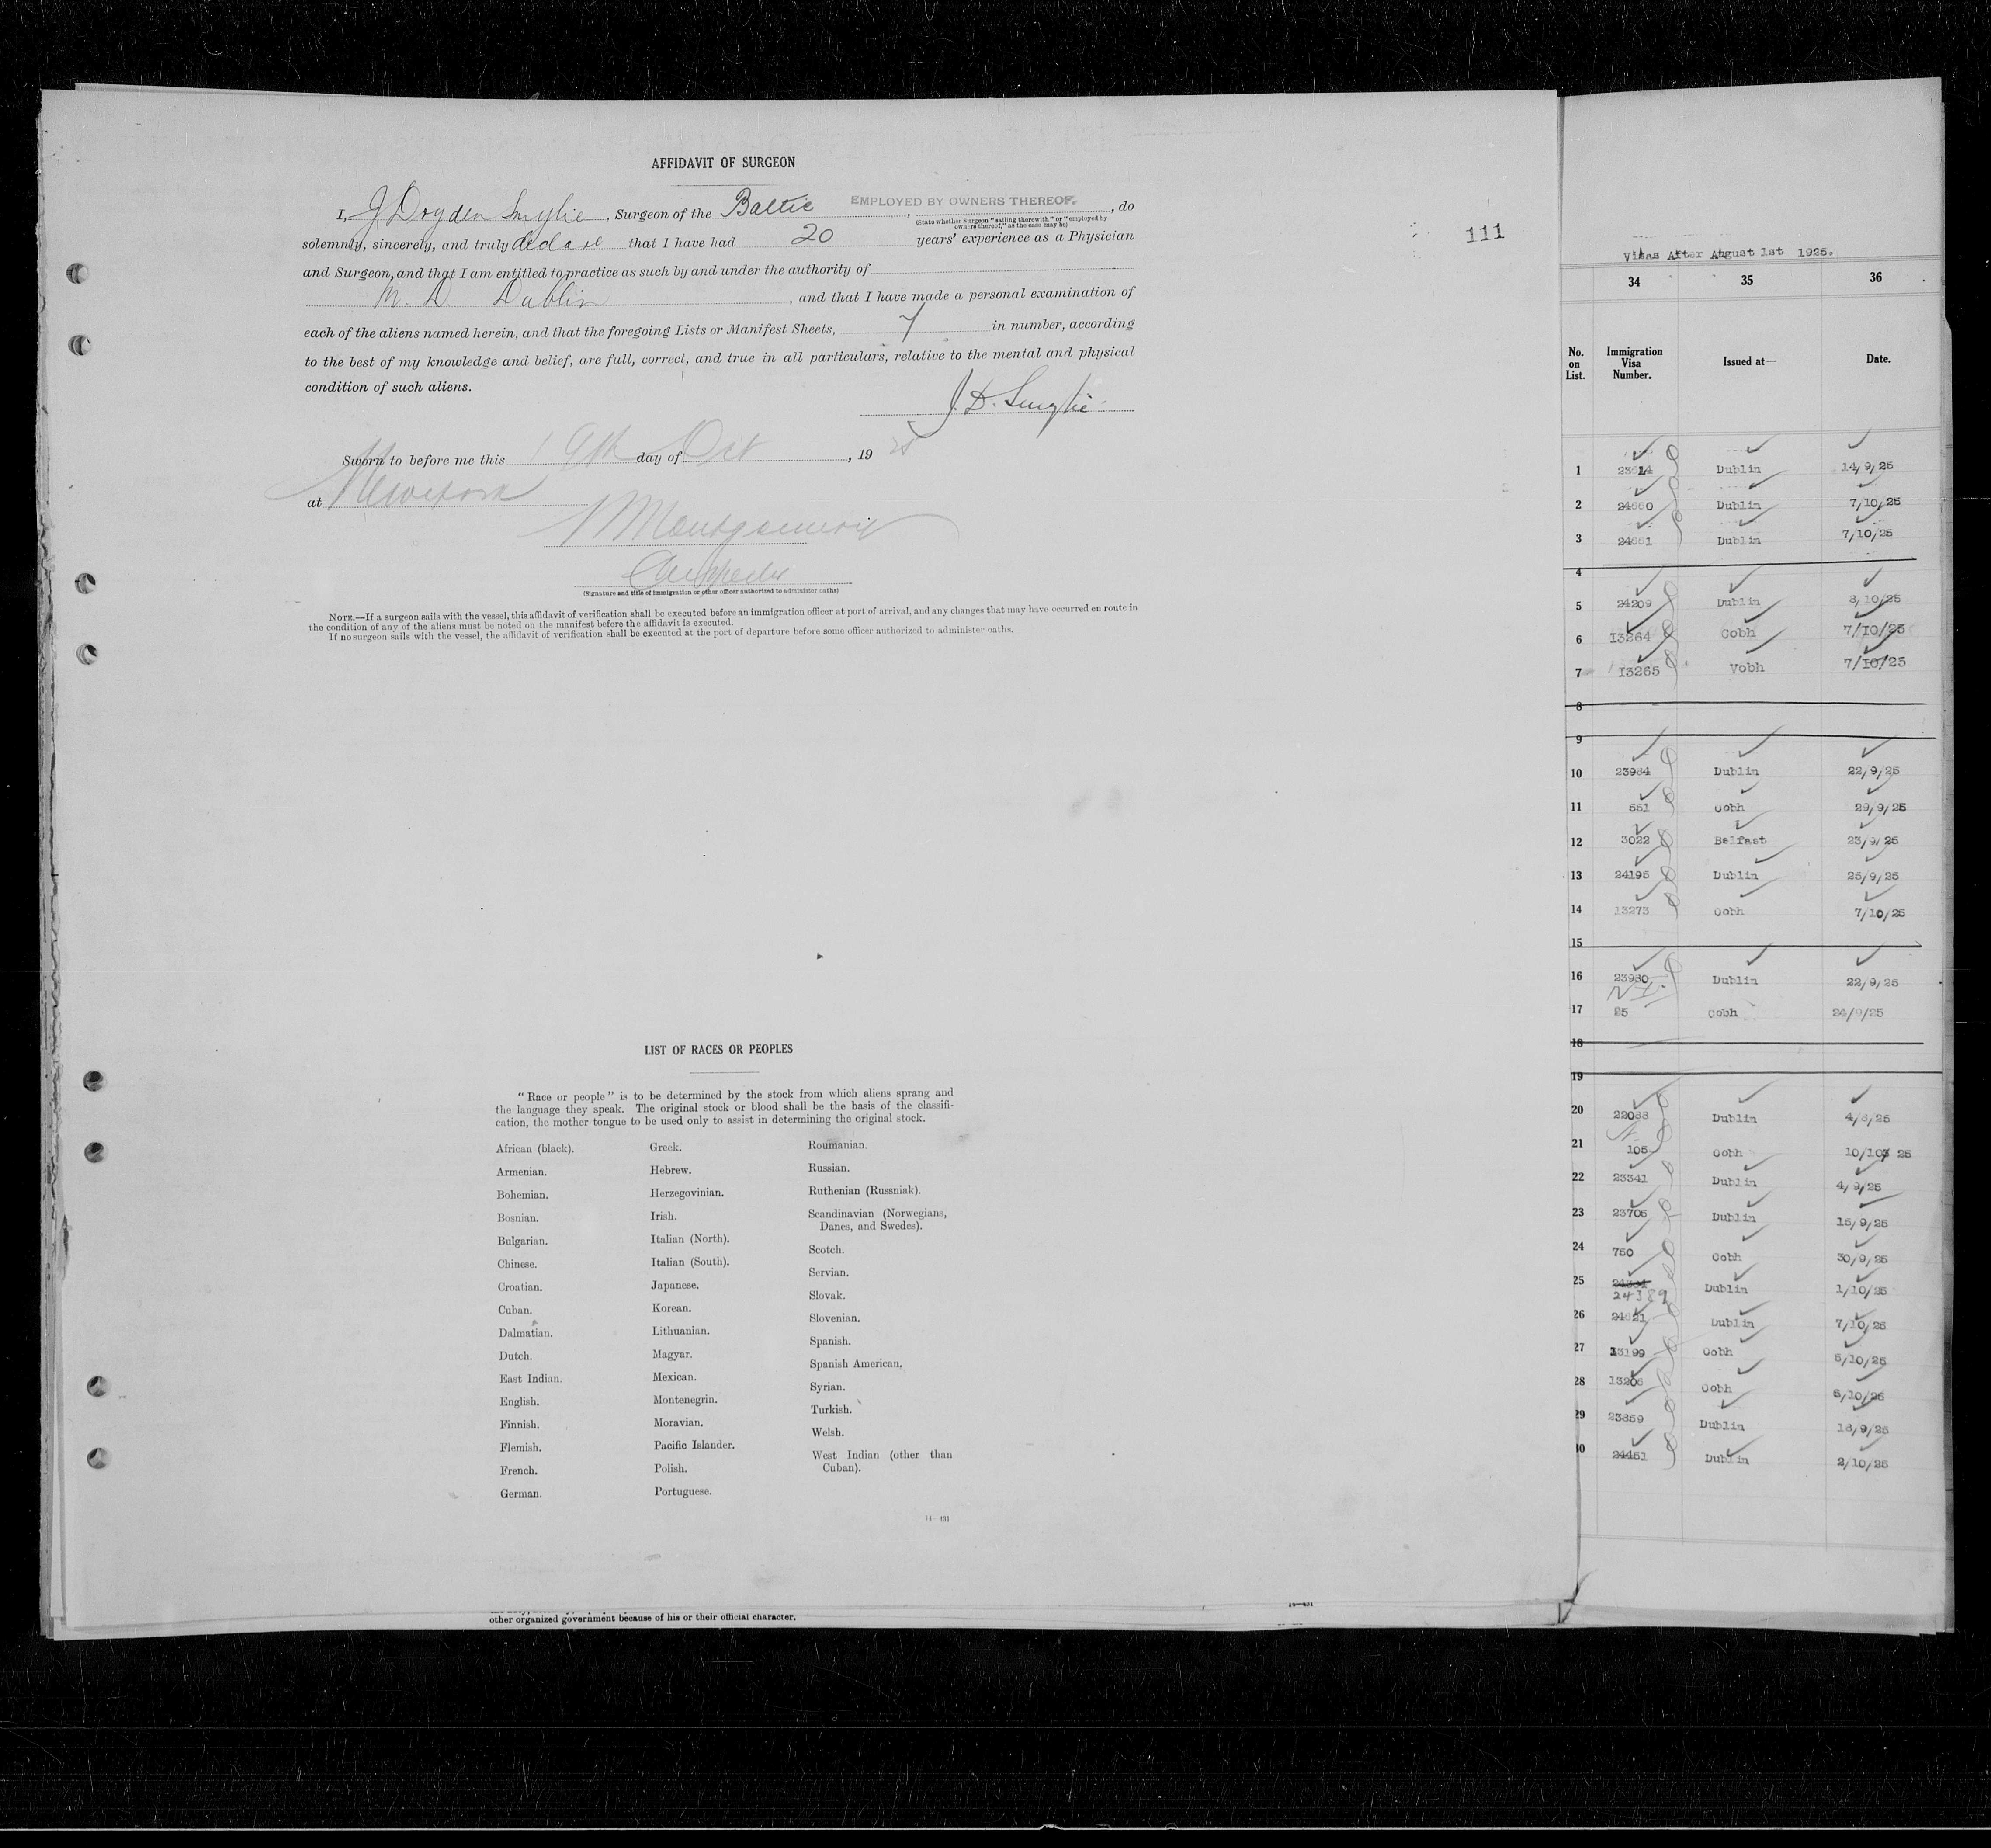 AFFIDAVIT OF SURGEON
I, J Dryden Smylie, Surgeon of the Baltic, EMPLOYED BY OWNERS THEREOF., do
(State whether Surgeon "sailing therewith" or "employed by
owners thereof," as the case may be)
solemnly, sincerely, and truly declare that I have had 20 years' experience as a Physician
and Surgeon, and that I am entitled to practice as such by and under the authority of
M. D. Dublin, and that I have made a personal examination of
each of the aliens named herein, and that the foregoing Lists or Manifest Sheets, 7 in number, according
to the best of my knowledge and belief, are full, correct, and true in all particulars, relative to the mental and physical
condition of such aliens.
J. D. Smylie
Sworn to before me this 19th day of Oct, 1925
at New York
Montgomery
(Signature and title of immigration or other officer authorized to administer oaths)
NOTE.—If a surgeon sails with the vessel, this affidavit of verification shall be executed before an immigration officer at port of arrival, and any changes that may have occurred en route in
the condition of any of the aliens must be noted on the manifest before the affidavit is executed.
If no surgeon sails with the vessel, the affidavit of verification shall be executed at the port of departure before some officer authorized to administer oaths.
111
LIST OF RACES OR PEOPLES
"Race or people" is to be determined by the stock from which aliens sprang and
the language they speak. The original stock or blood shall be the basis of the classifi-
cation, the mother tongue to be used only to assist in determining the original stock.
African (black).
Armenian.
Bohemian.
Bosnian.
Bulgarian.
Chinese.
Croatian.
Cuban.
Dalmatian.
Dutch.
East Indian.
English.
Finnish.
Flemish.
French.
German.
Greek.
Hebrew.
Herzegovinian.
Irish.
Italian (North).
Italian (South).
Japanese.
Korean.
Lithuanian.
Magyar.
Mexican.
Montenegrin.
Moravian.
Pacific Islander.
Polish.
Portuguese.
Roumanian.
Russian.
Ruthenian (Russniak).
Scandinavian (Norwegians,
Danes, and Swedes).
Scotch.
Servian.
Slovak.
Slovenian.
Spanish.
Spanish American.
Syrian.
Turkish.
Welsh.
West Indian (other than
Cuban).
14—431
other organized government because of his or their official character.
Visas After August 1st 1925.
34 35 36
No. on List. Immigration Visa Number. Issued at— Date.
1 Dublin 14/9/25
2 Dublin 7/10/25
3 Dublin 7/10/25
4
5 24209 Dublin 8/10/25
6 13264 Cobh 7/10/25
7 13265 Vobh 7/10/25
8
9
10 23984 Dublin 22/9/25
11 551 Cobh 29/9/25
12 3022 Belfast 23/9/25
13 24195 Dublin 25/9/25
14 13273 Cobh 7/10/25
15
16 23980 Dublin 22/9/25
17 25 Cobh 24/9/25
18
19
20 22088 Dublin 4/8/25
21 105 Cobh 25
22 23341 Dublin 4/9/25
23 23705 Dublin 15/9/25
24 750 Cobh 30/9/25
25 24389 Dublin 1/10/25
26 Dublin 7/10/25
27 13199 Cobh 5/10/25
28 13205 Cobh 5/10/25
29 23859 Dublin 18/9/25
30 24451 Dublin 2/10/25